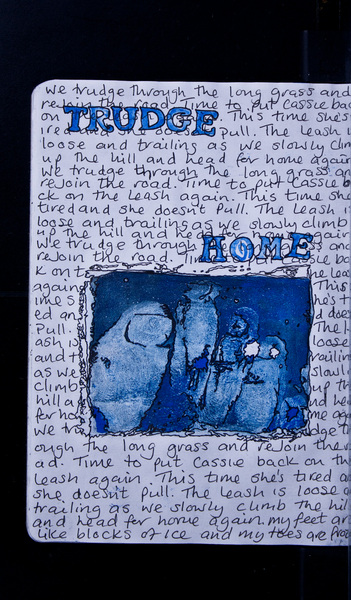 we trudge through the long grass and
rejoin the road. Time to put Cassie bac
on TRUDGE This time she's
ired and she doesn't pull. The leash is
loose and trailing as we slowly clim
up the hill and head for home again
we trudge through the long grass an
rejoin the road. Time to put Cassie b
ck on the leash again. This time she
tired and she doesn't pull. The leash i
loose and trailing as we slowly climb
up the hill and head for home again
we trudge through HOME
rejoin the road. Tim
k on t
again
ime s
ed an
pull.
ash is
and t
as we
climb
hill a
for ho
we tru
This
he's t
d does
The l
loose
railin
slowl
up th
me aga
udge t
ough the long grass and rejoin the r
ad. Time to put Cassie back on th
leash again. This time she's tired a
she doesn't pull. The leash is loose a
trailing as we slowly climb the hil
and head for home again. my feet ar
like blocks of ice and my toes are froz